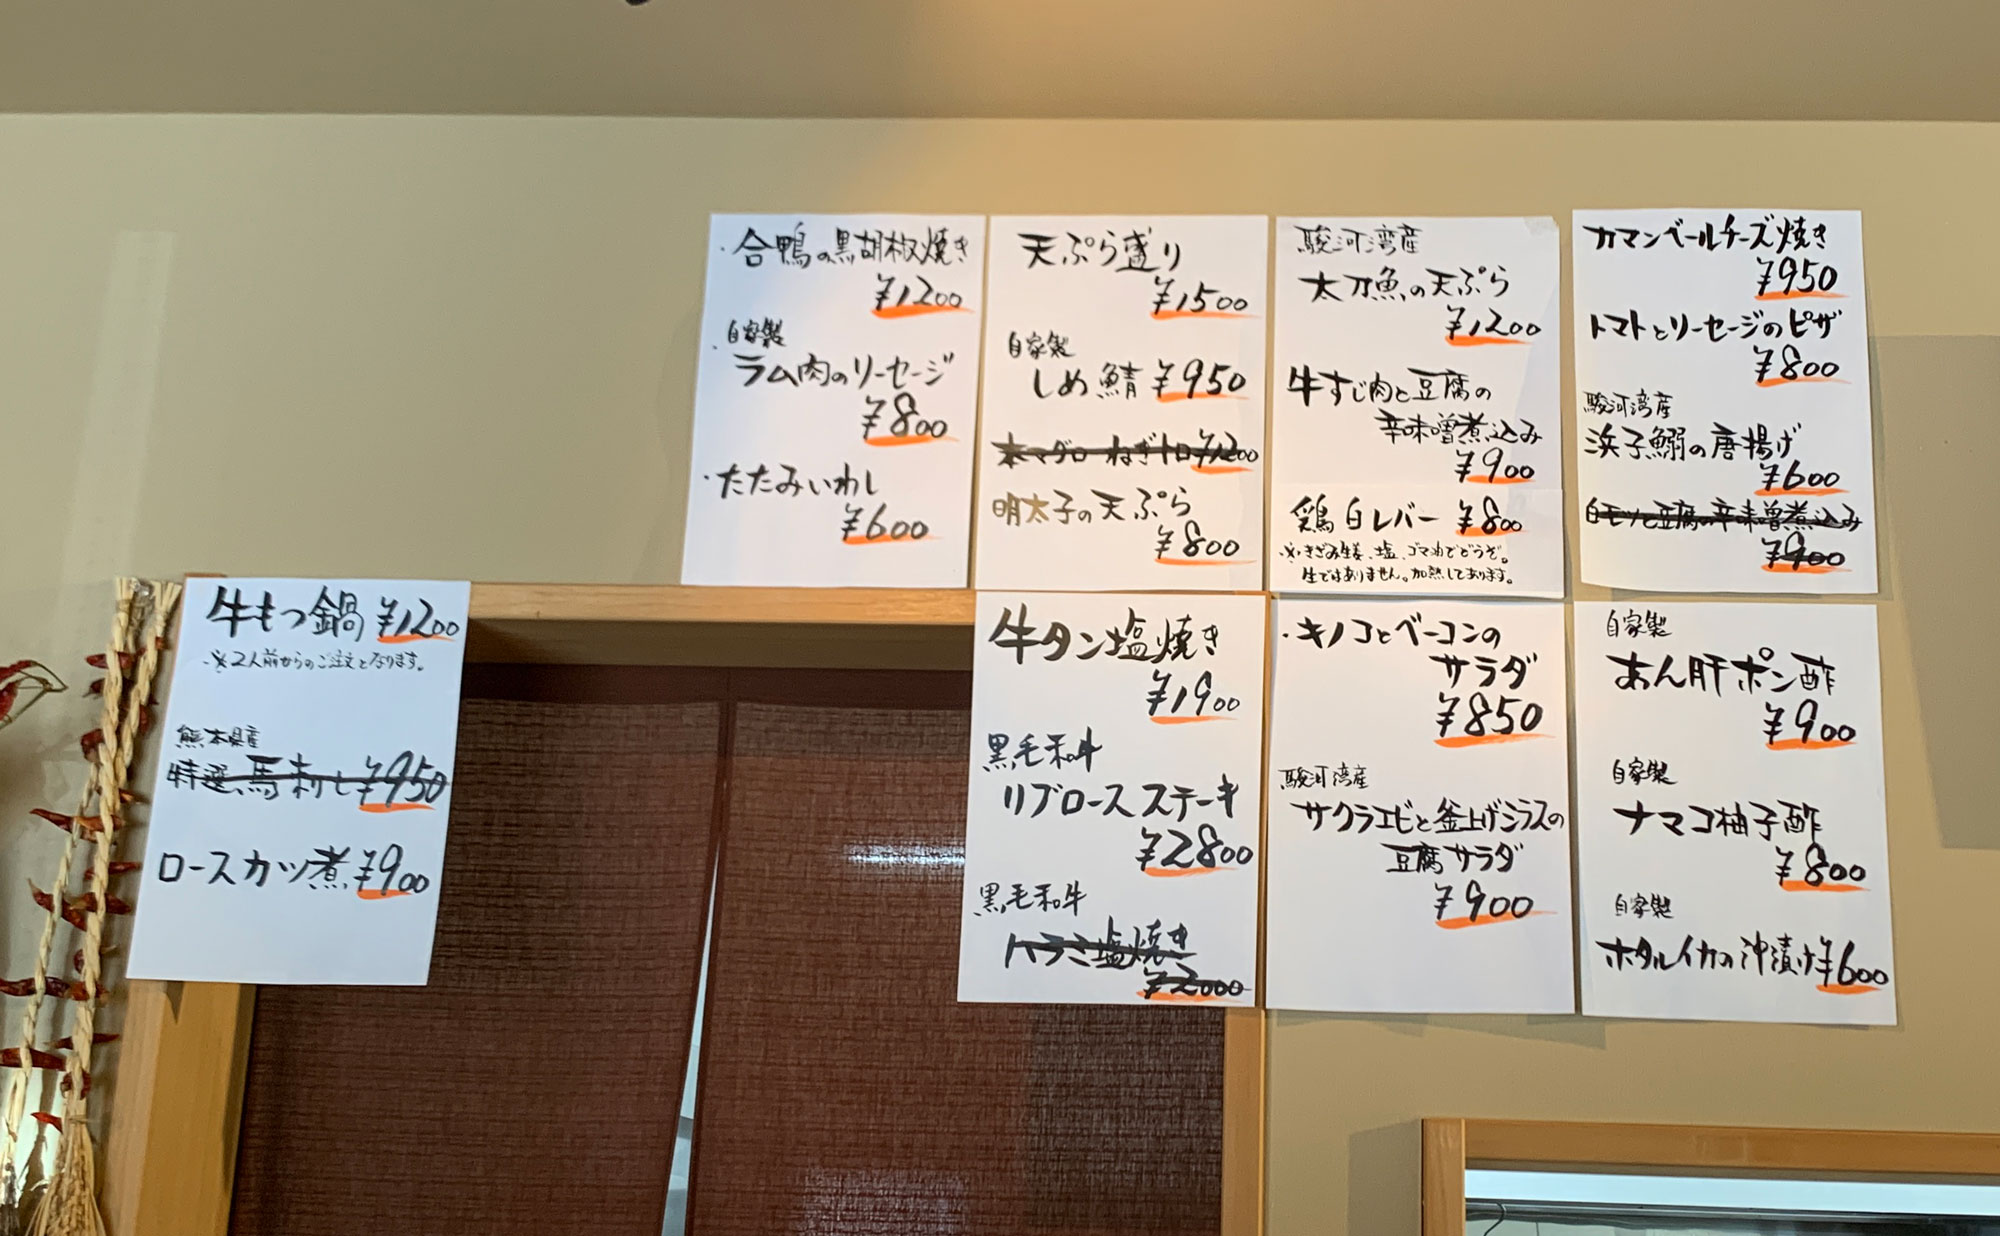 ・合鴨の黒胡椒焼き
¥1200
・自家製
ラム肉のソーセージ
¥800
・たたみいわし
¥600
天ぷら盛り
¥1500
自家製
しめ鯖 ¥950
本マグロ ねぎトロ ¥1200
明太子の天ぷら
¥800
駿河湾産
太刀魚の天ぷら
¥1200
牛すじ肉と豆腐の
辛味噌煮込み
¥900
鶏白レバー ¥800
※きざみ生姜、塩、ゴマ油でどうぞ。
生ではありません。加熱してあります。
カマンベールチーズ焼き
¥950
トマトとソーセージのピザ
¥800
駿河湾産
浜子鰯の唐揚げ
¥600
白モツと豆腐の辛味噌煮込み
¥900
牛もつ鍋 ¥1200
※2人前からのご注文となります。
熊本県産
特選馬刺し ¥950
ロースカツ煮 ¥900
牛タン塩焼き
¥1900
黒毛和牛
リブロースステーキ
¥2800
黒毛和牛
ハラミ塩焼き
¥2000
・キノコとベーコンの
サラダ
¥850
駿河湾産
サクラエビと釜上げシラスの
豆腐サラダ
¥900
自家製
あん肝ポン酢
¥900
自家製
ナマコ柚子酢
¥800
自家製
ホタルイカの沖漬け ¥600